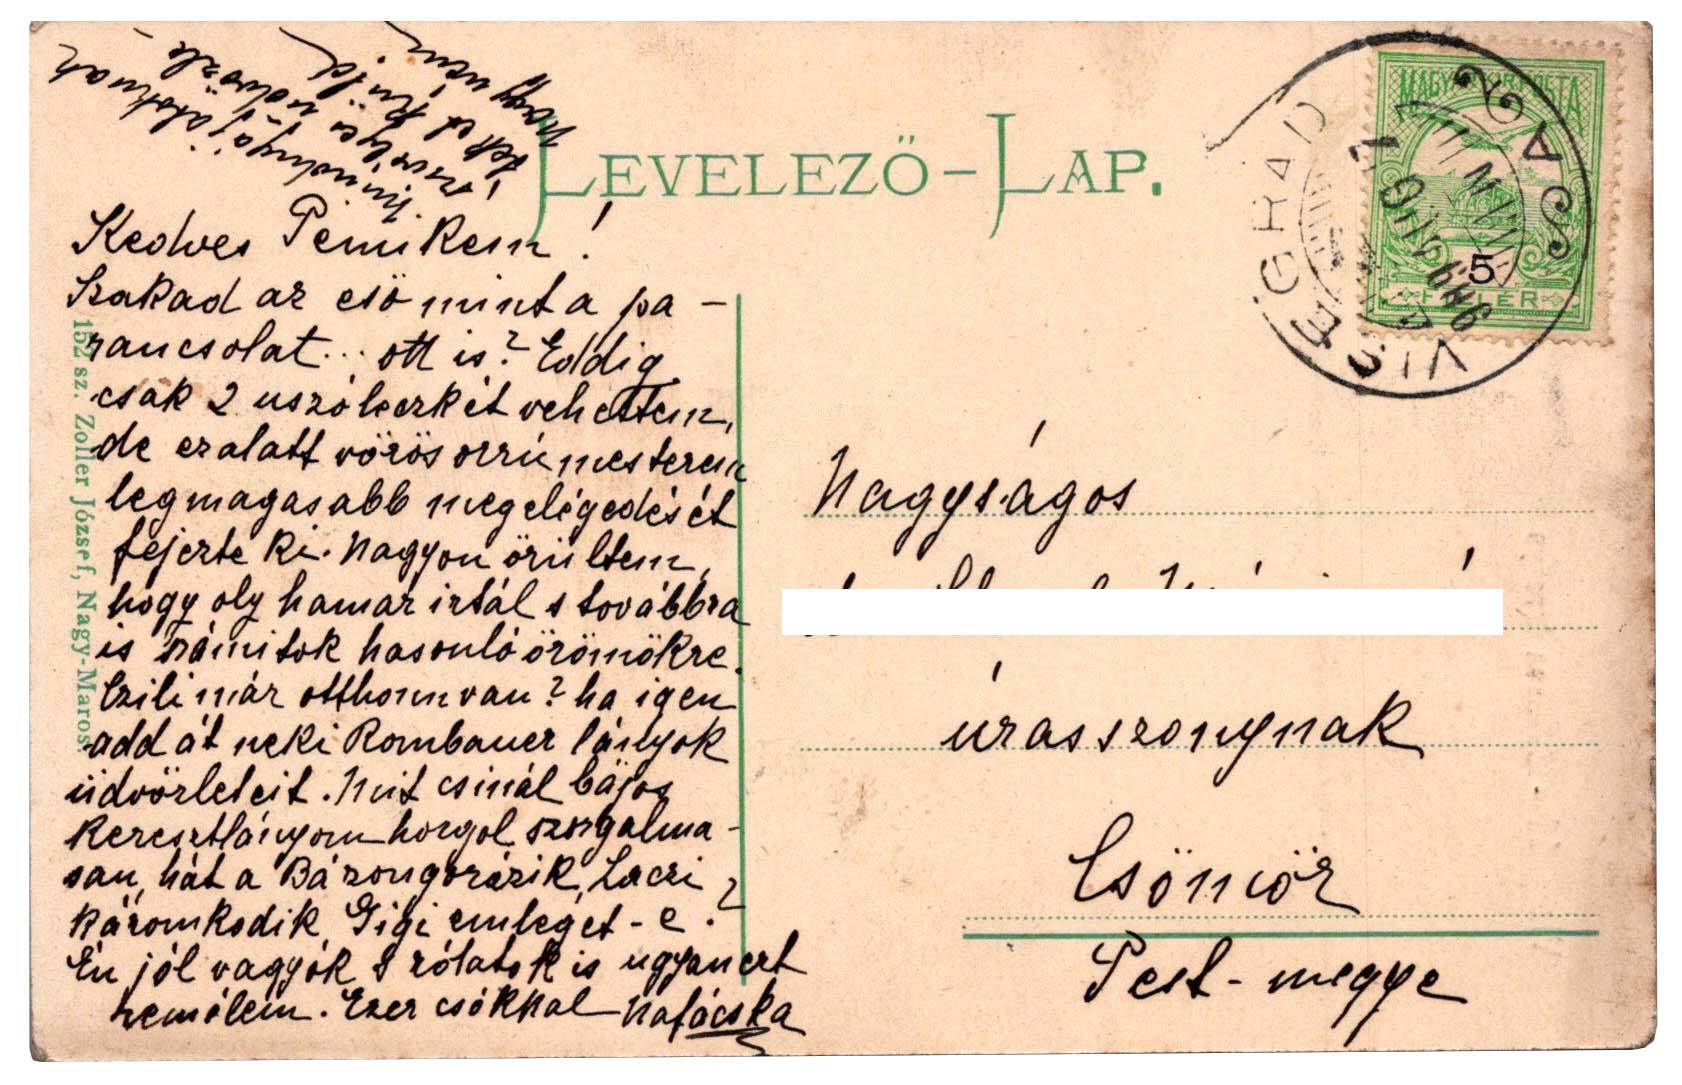 LEVELEZŐ-LAP.
MAGYAR KIR. POSTA
5
FILLÉR
VISEGRAD
Kedves Pemikem!
Szakad az eső mint a pa-
rancsolat... ott is? Eddig
csak 2 uszóleczkét vehettem,
de ezalatt vörös orrú mesterem
legmagasabb megelégedését
fejezte ki. Nagyon örültem,
hogy oly hamar irtál s továbbra
is számitok hasonló örömökre.
Czili már otthonn van? ha igen
add át neki Rombauer lányok
üdvözleteit. Mit csinál bájos
keresztlányom horgol szorgalma-
san, hát a Bá zongorázik, Laczi
káromkodik, Gigi emleget-e?
Én jól vagyok s rólatok is ugyanezt
remélem. Ezer csókkal Nafácska
üdvözle
nagy
152 sz. Zoller József, Nagy-Maros.
Nagyságos
úrasszonynak
Csömör
Pest-megye